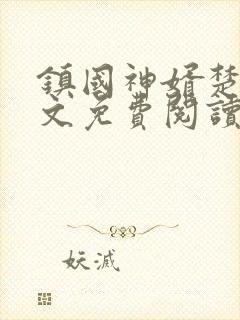 鎮國神婿楚
文免費閱讀
妖滅